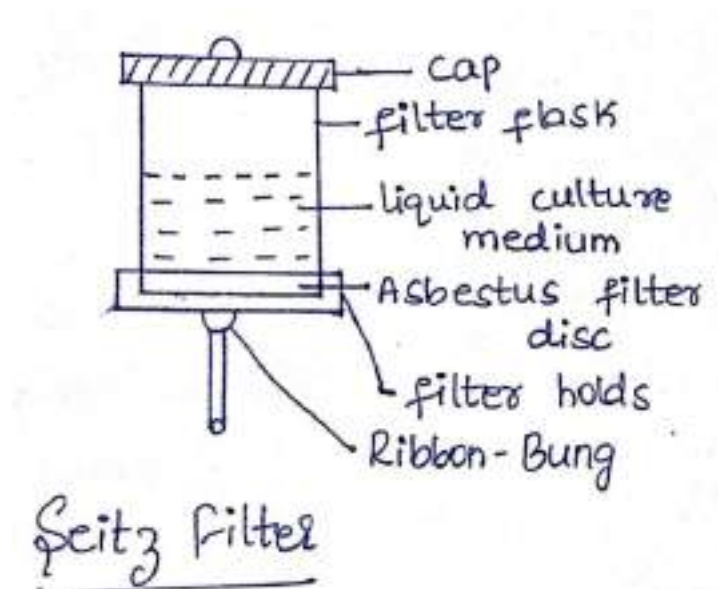 cap
filter flask
liquid culture
medium
Asbestus filter
disc
filter holds
Ribbon-Bung
Seitz Filter